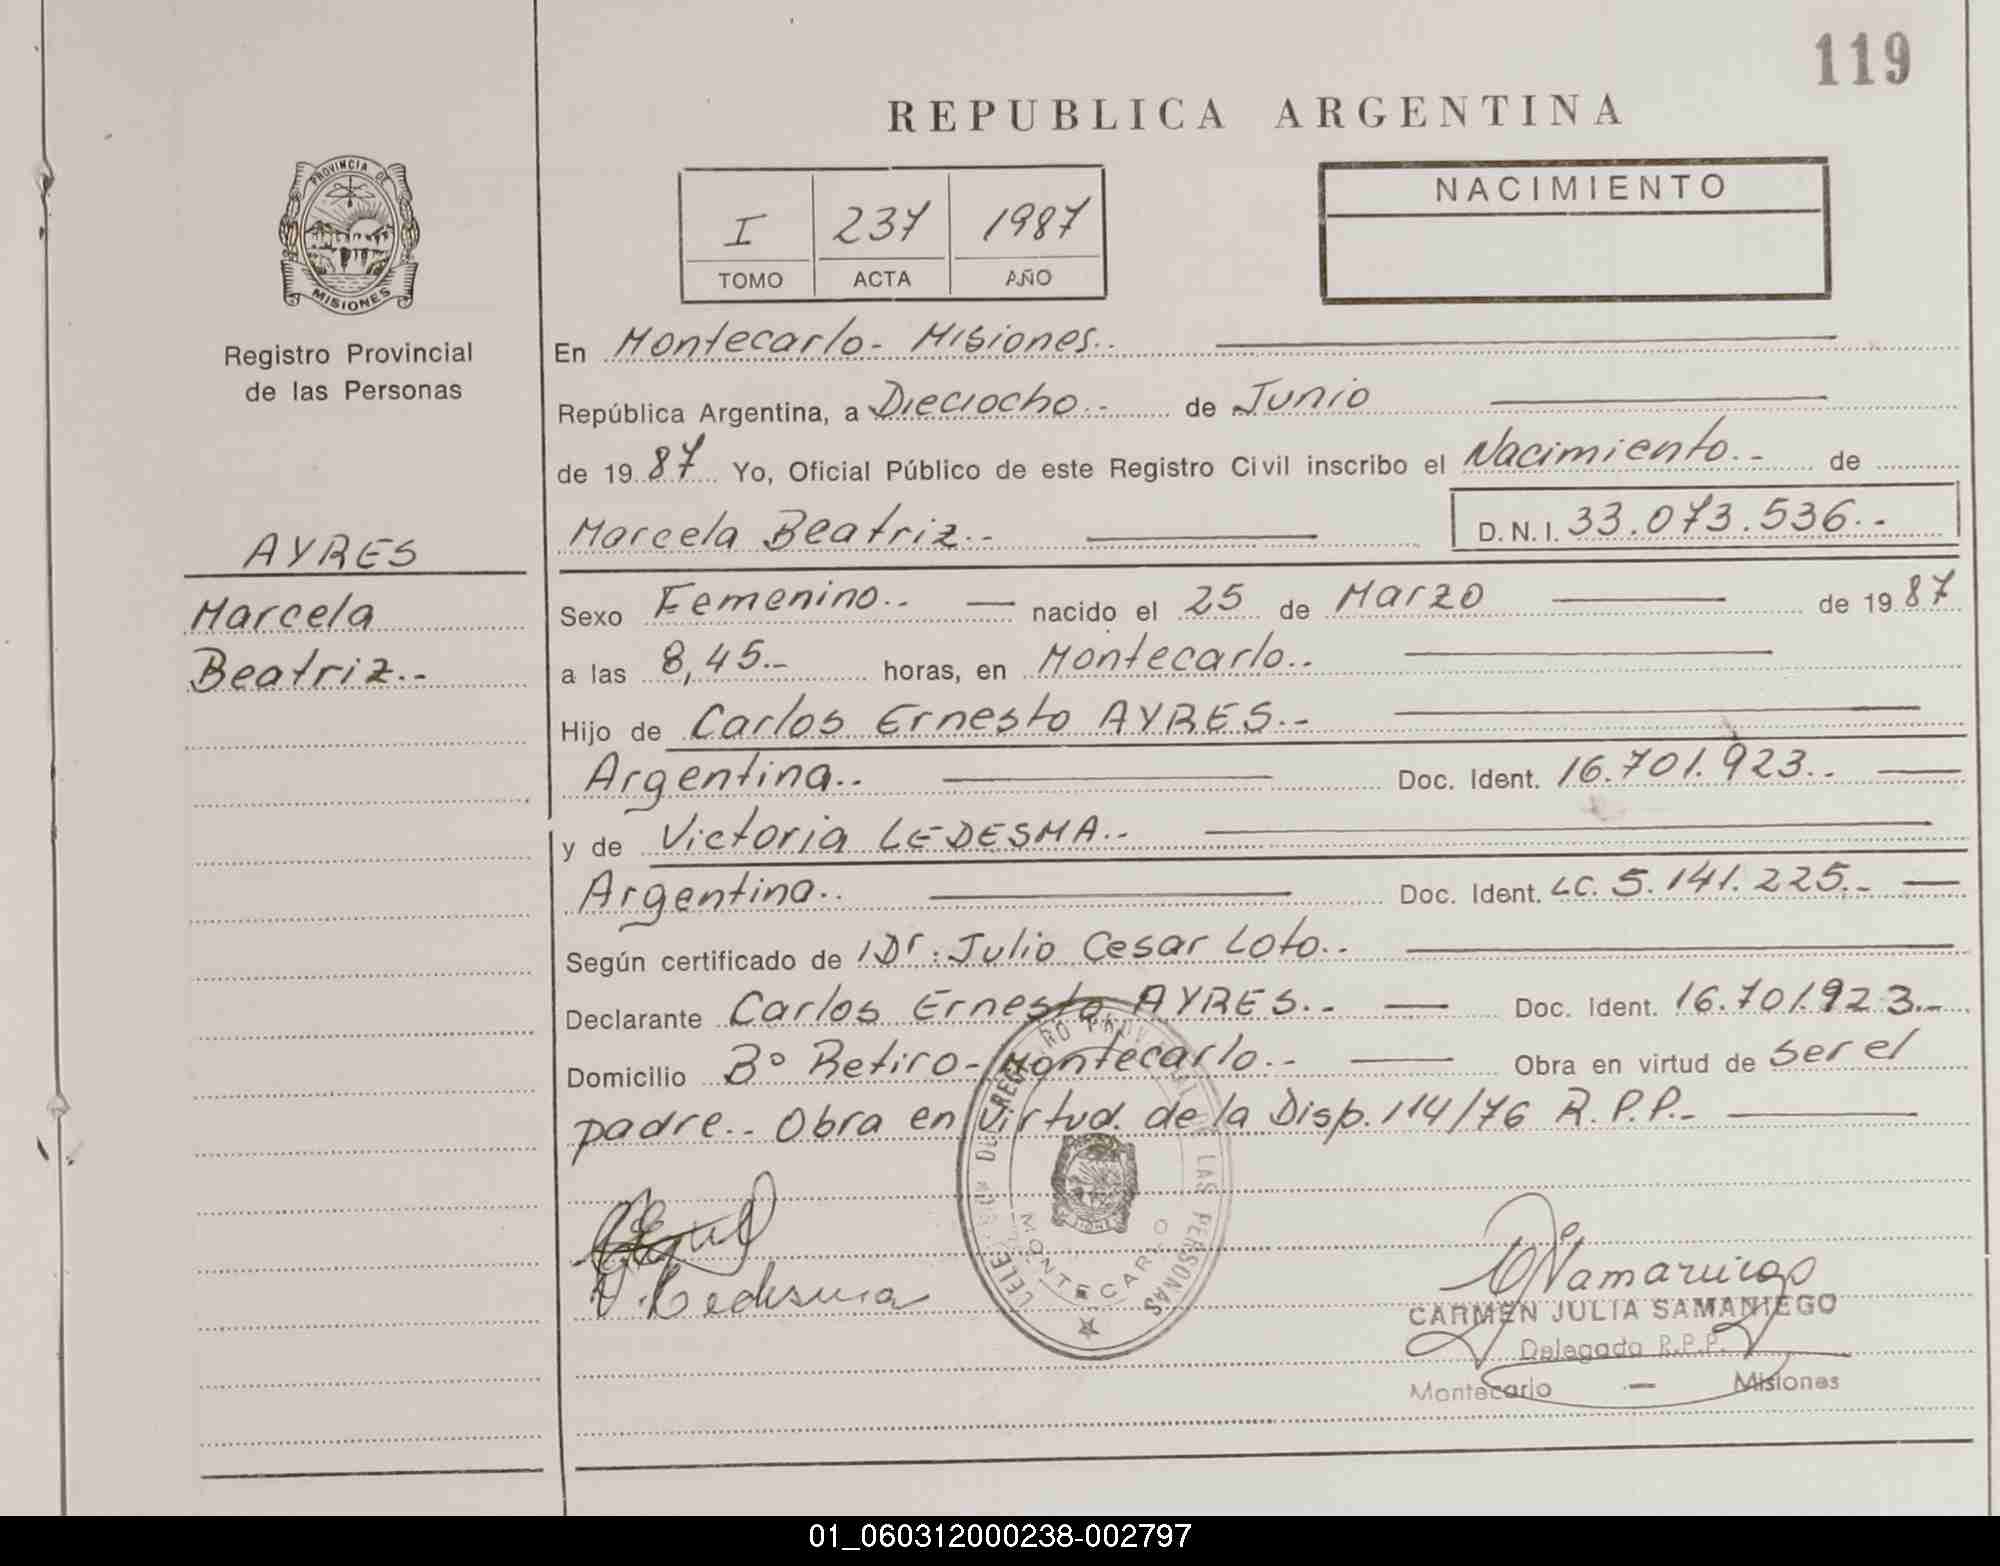 119
REPUBLICA ARGENTINA
PROVINCIA DE
MISIONES
Registro Provincial
de las Personas
I 237 1987
TOMO ACTA AÑO
NACIMIENTO
En Montecarlo- Misiones..
República Argentina, a Dieciocho.- de Junio
de 1987 Yo, Oficial Público de este Registro Civil inscribo el Nacimiento.- de
Marcela Beatriz.- D.N.I. 33.073.536.-
AYRES
Marcela
Beatriz.-
Sexo Femenino.. nacido el 25 de Marzo de 1987
a las 8,45.- horas, en Montecarlo..
Hijo de Carlos Ernesto AYRES.-
Argentina.. Doc. Ident. 16.701.923..
y de Victoria LEDESMA.-
Argentina.. Doc. Ident. LC. 5.141.225.-
Según certificado de Dr. Julio Cesar Loto..
Declarante Carlos Ernesto AYRES.- Doc. Ident. 16.701.923.-
Domicilio Bº Retiro-Montecarlo.- Obra en virtud de ser el
padre.. Obra en virtud. de la Disp. 114/76 R.P.P.-
LAS PERSONAS
MONTECARLO
V. Ledesma
CARMEN JULIA SAMANIEGO
Delegado R.P.P.
Montecarlo - Misiones
01_060312000238-002797